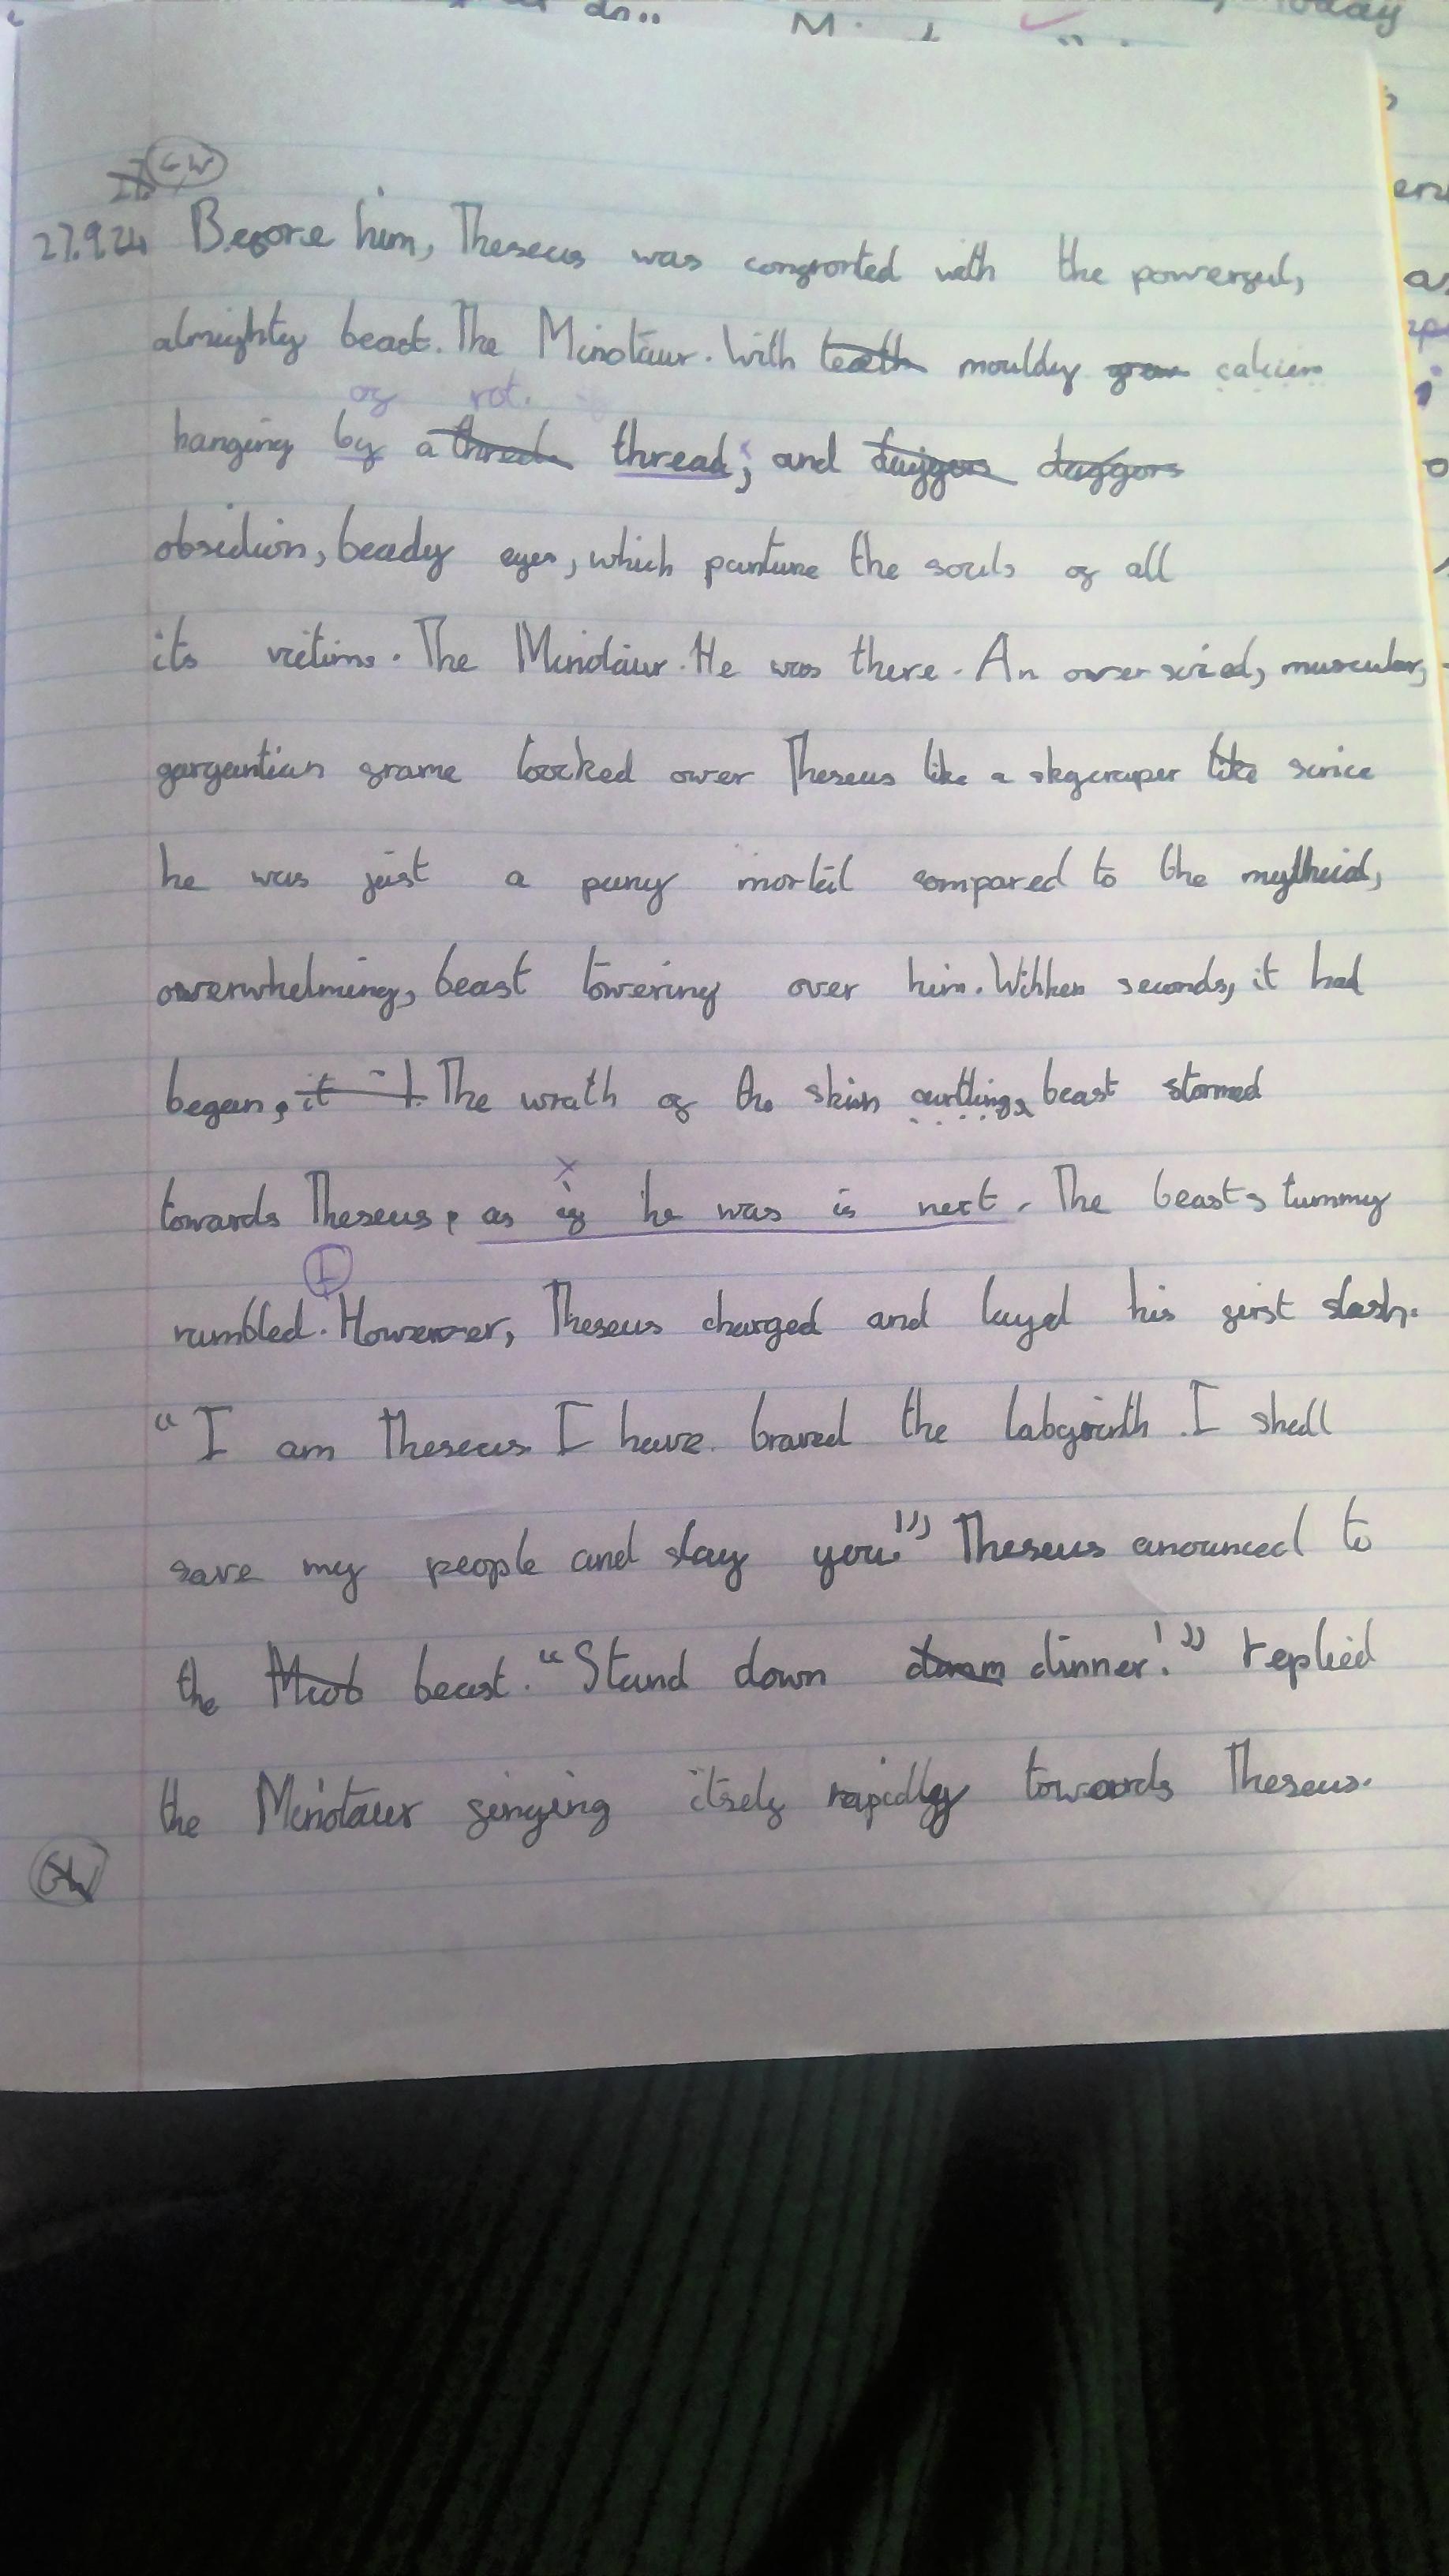 CW
27.9.24 Before him, Theseus was confronted with the powerful,
almighty beast. The Minotaur. With teeth mouldy calcium
of rot.
hanging by a thread, and daggers
obsidian, beady eyes, which puncture the souls of all
its victims. The Minotaur. He was there. An oversized, muscular,
gargantian frame loocked over Theseus like a skycraper like since
he was just a puny mortal compared to the mythical,
overwhelming, beast towering over him. Within seconds, it had
began, it The wrath of the skin curtling, beast stormed
towards Theseus, as if he was is next. The beasts tummy
rumbled. However, Theseus charged and layed his first slash.
"I am Theseus I have braved the labyrinth. I shall
save my people and slay you!", Theseus anounced to
the beast. "Stand down dinner!" replied
the Minotaur flinging itself rapidly towards Theseus.
CW